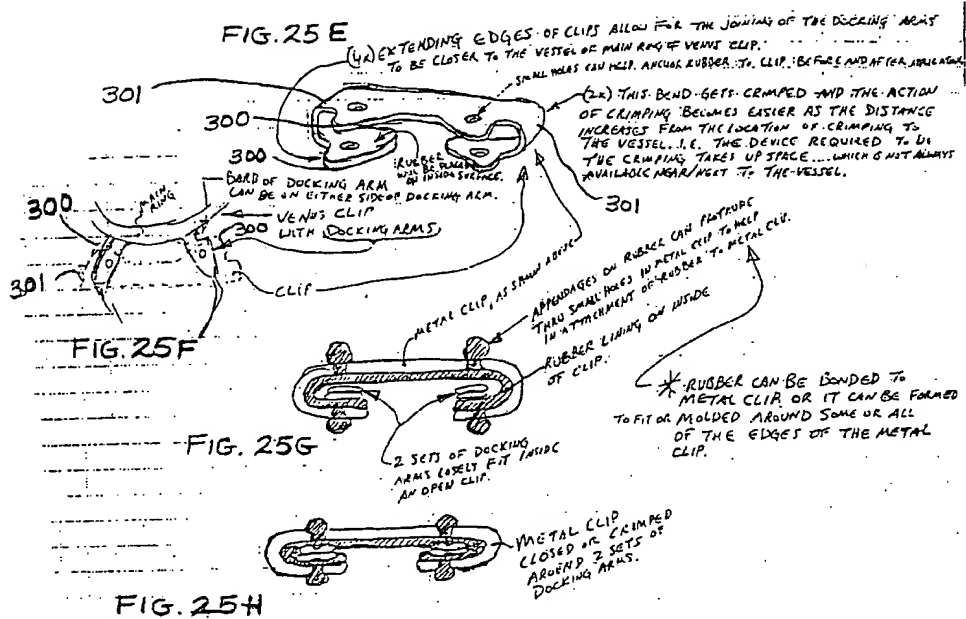 FIG. 25 E
(4X) EXTENDING EDGES OF CLIPS ALLOW FOR THE JOINING OF THE DOCKING ARMS
TO BE CLOSER TO THE VESSEL OF MAIN RING OF VENUS CLIP.
SMALL HOLES CAN HELP ANCHOR RUBBER TO CLIP BEFORE AND AFTER
301
300
300
RUBBER
WILL BE PLACED
ON INSIDE SURFACE.
(2X) THIS BEND GETS CRIMPED AND THE ACTION
OF CRIMPING BECOMES EASIER AS THE DISTANCE
INCREASES FROM THE LOCATION OF CRIMPING TO
THE VESSEL. I.E. THE DEVICE REQUIRED TO DO
THE CRIMPING TAKES UP SPACE.... WHICH IS NOT ALWAYS
AVAILABLE NEAR/NEXT TO THE VESSEL.
301
BARB OF DOCKING ARM
CAN BE ON EITHER SIDE OF DOCKING ARM.
MAIN
RING
300
VENUS CLIP
WITH DOCKING ARMS
300
301
CLIP
FIG. 25F
METAL CLIP, AS SHOWN ABOVE
APPENDAGES ON RUBBER CAN PROTRUDE
THRU SMALL HOLES IN METAL CLIP TO HELP
IN ATTACHMENT OF RUBBER TO METAL CLIP.
RUBBER LINING ON INSIDE
OF CLIP.
FIG. 25G
2 SETS OF DOCKING
ARMS LOSELY FIT INSIDE
AN OPEN CLIP.
* RUBBER CAN BE BONDED TO
METAL CLIP OR IT CAN BE FORMED
TO FIT OR MOLDED AROUND SOME OR ALL
OF THE EDGES OF THE METAL
CLIP.
METAL CLIP
CLOSED OR CRIMPED
AROUND 2 SETS OF
DOCKING ARMS.
FIG. 25H